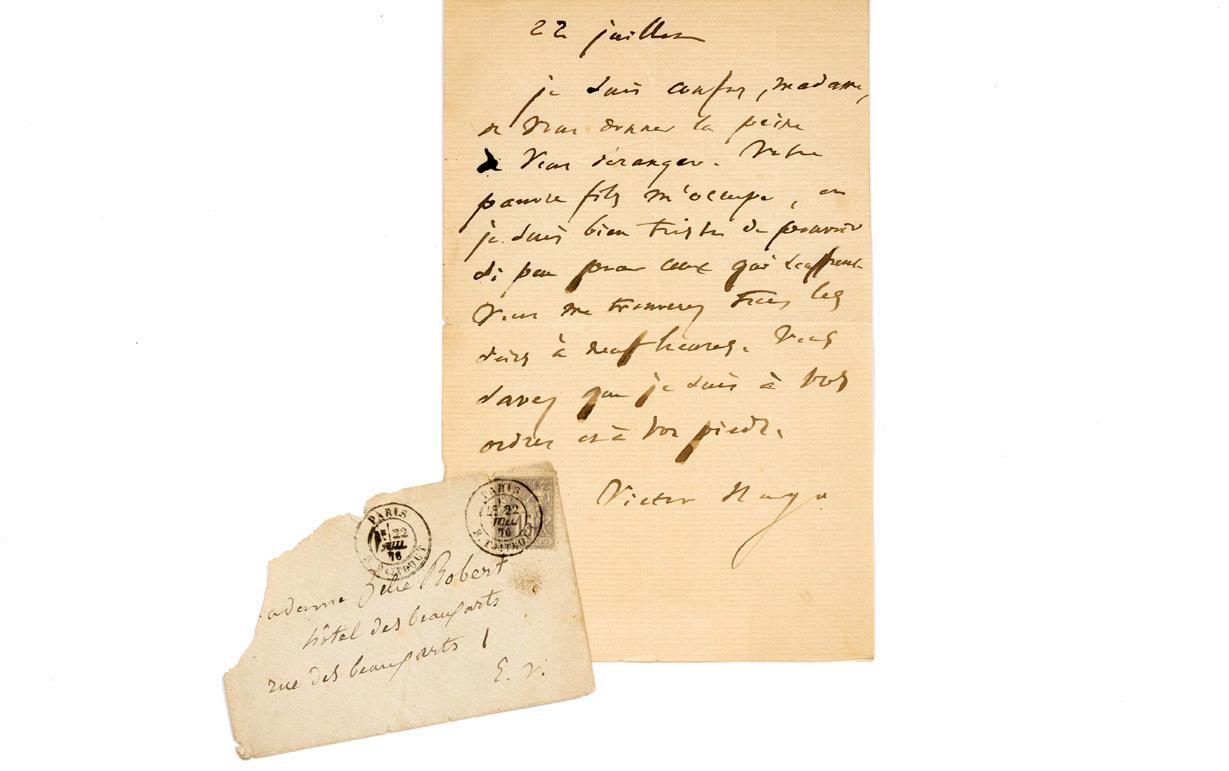 22 juillet
je suis confus, madame,
de vous donner la peine
de vous déranger. Votre
pauvre fils m'occupe, et
je suis bien triste de pouvoir
si peu pour ceux qui souffrent.
Vous me trouverez tous les
soirs à neuf heures. Vous
savez que je suis à vos
ordres et à vos pieds.
Victor Hugo
PARIS
22
JUIL
76
R. TAITBOUT
PARIS
22
JUIL
76
R. TAITBOUT
15
adame Zélie Robert
hôtel des beauxarts
rue des beauxarts 1
E. V.